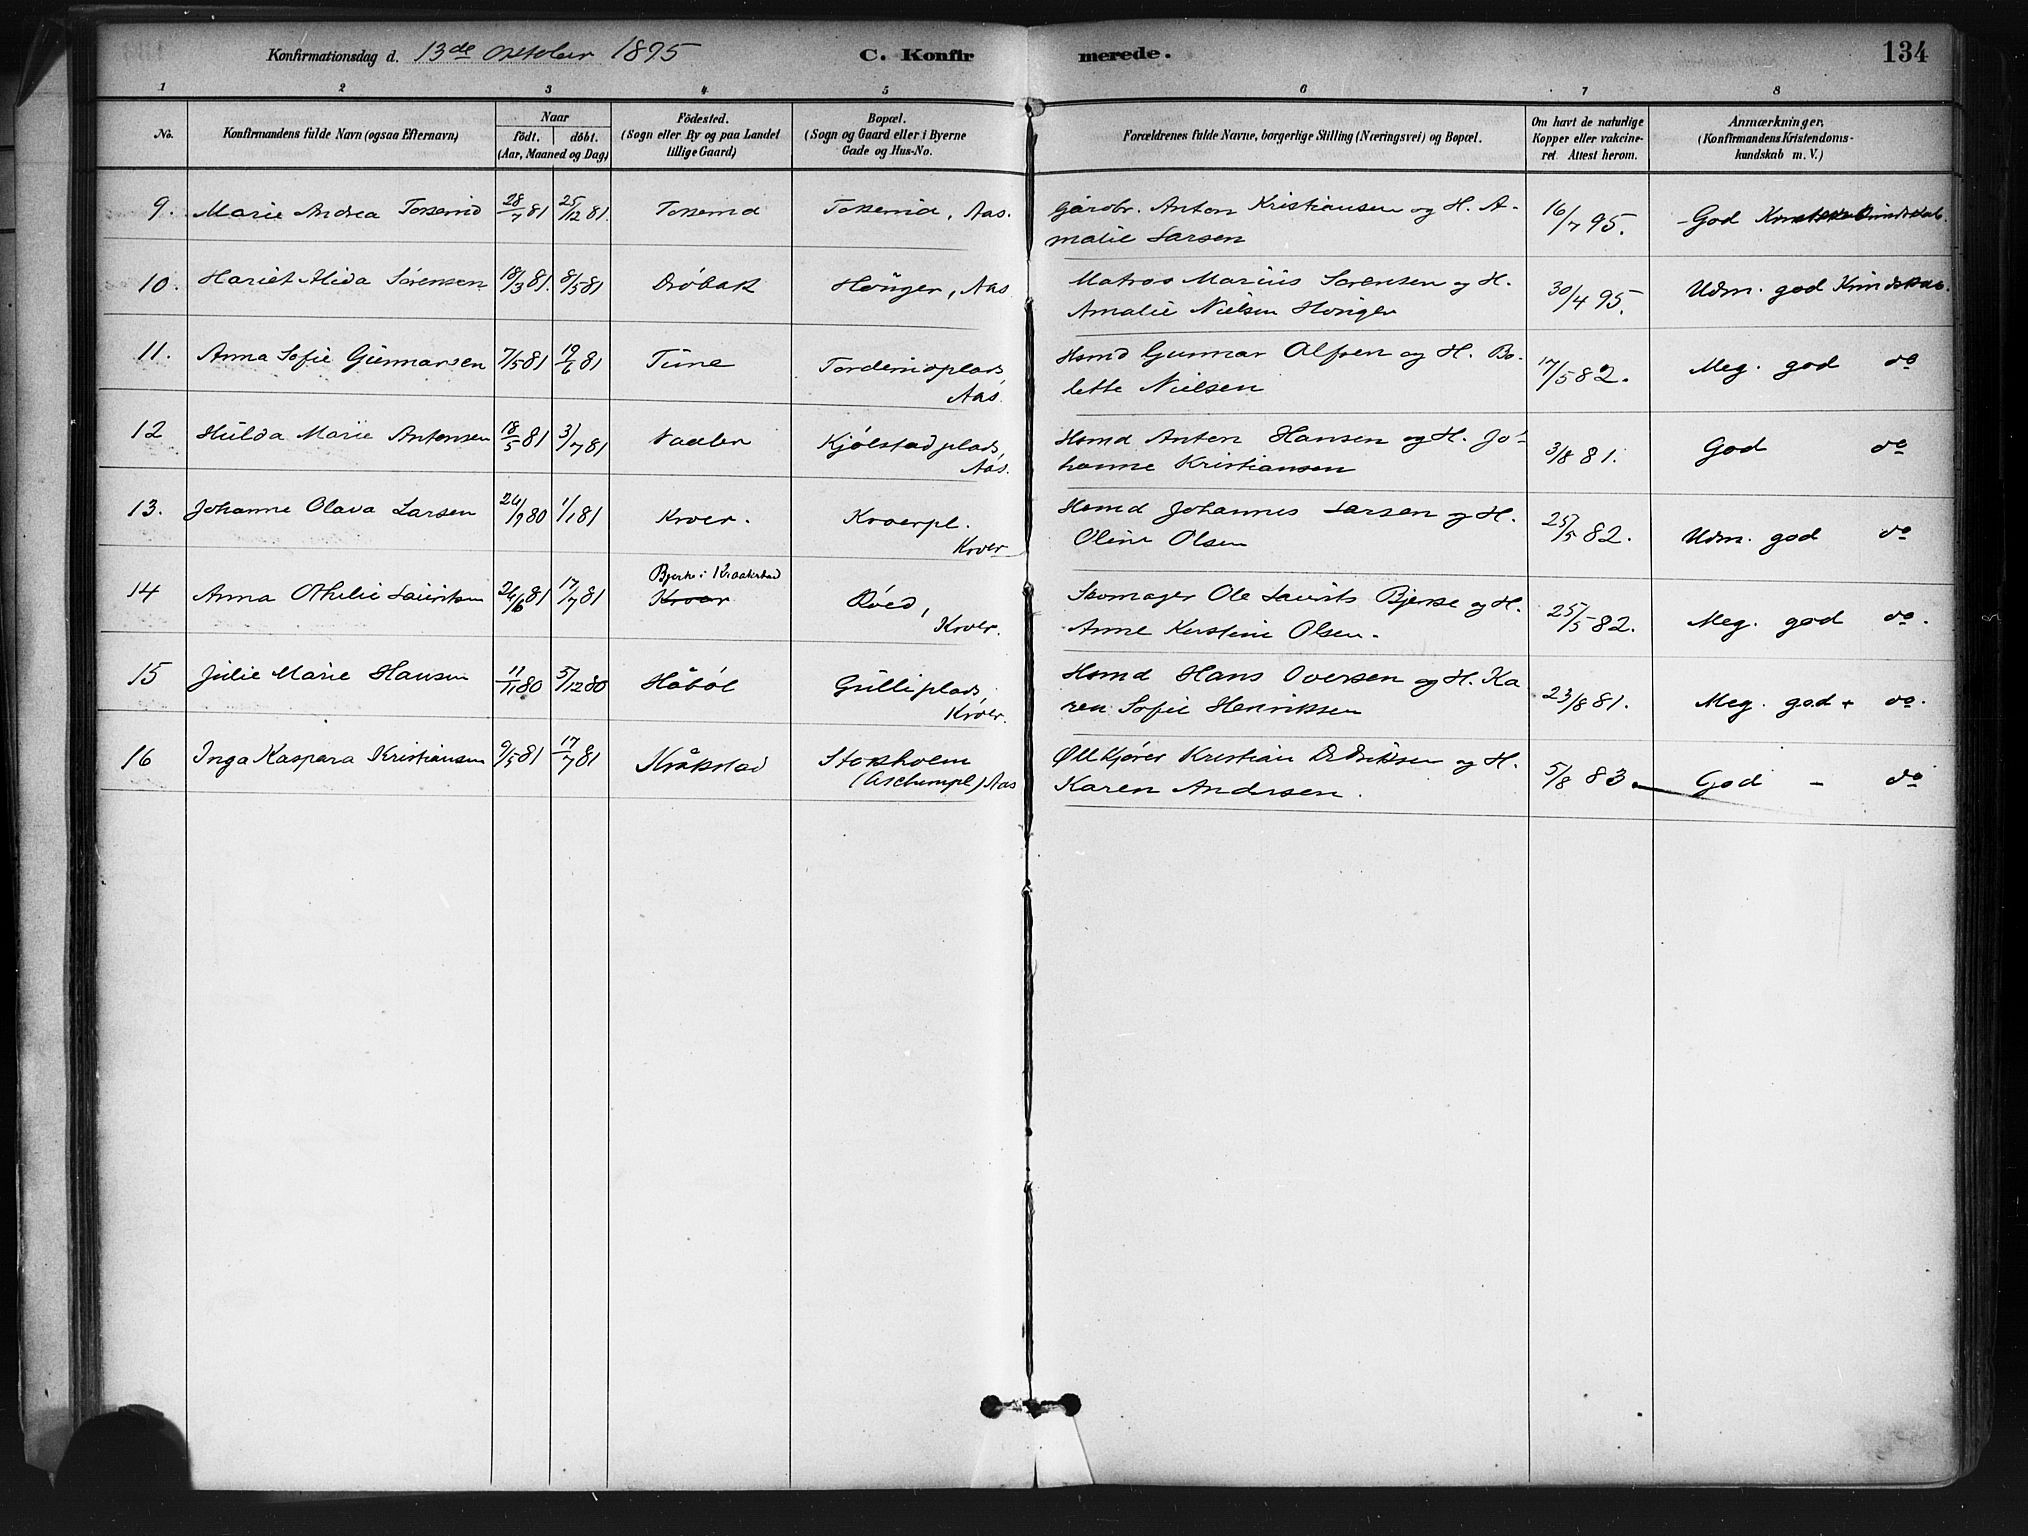 Konfirmationsdag d. 13de Oktober 1895 C. Konfirmerede. 134
1 2 3 4 5 6 7 8
No. Konfirmandens fulde Navn (ogsaa Efternavn) Naar
födt. döbt.
(Aar, Maaned og Dag)
Födested.
(Sogn eller By og paa Landet
tillige Gaard)
Bopæl.
(Sogn og Gaard eller i Byerne
Gade og Hus-No.
Forældrenes fulde Navne, borgerlige Stilling (Næringsvei) og Bopæl.
Om havt de naturlige
Kopper eller vakcine-
ret Attest herom.
Anmærkninger.
(Konfirmandens Kristendoms-
kundskab m. V.)
9. Marie Andrea Tokerud 28/7 81 25/12 81. Tokerud Tokerud, Aas. Gårdbr. Anton Kristiansen og H. A-
malie Larsen 16/7 95. God Kundskab.
10. Hariet Alida Sörensen 18/3 81. 8/5 81 Dröbak Höuger, Aas Matros Marius Sorensen og H.
Amalie Nielsen Höuger 30/4 95. Udm. god Kundskab.
11. Anna Sofie Gunnarsen 7/5 81 19/6 81 Tune Torderudplads,
Aas. Hsmd Gunnar Olsen og H. Bo-
lette Nielsen 17/5 82. Meg. god do
12 Hulda Marie Antonsen 18/5 81 31/7 81 Vaaler Kjölstadplads,
Aas. Hsmd Anton Hansen og H. Jo-
hanne Kristiansen 3/8 81. God do
13. Johanne Olava Larsen 26/9 80 1/1 81 Kroer. Kroerpl.
Kroer Hsmd Johannes Larsen og H.
Oline Olsen 25/5 82. Udm. god do
14 Anna Othelie Lauritsen 26/6 81 17/7 81 Bjerke i Kraakstad
Kroer Röed,
Kroer. Skomager Ole Laurits Bjerke og H.
Anne Kerstine Olsen. 25/5 82. Meg. god do.
15 Julie Marie Hansen 11/11 80 5/12 80 Håböl Gulliplads,
Kroer. Hsmd Hans Oversen og H. Ka
ren Sofie Henriksen 23/8 81. Meg. god + do.
16 Inga Kaspara Kristiansen 9/5 81 17/7 81 Kråkstad Stokholm
(Aschimpl.) Aas Ölkjörer Kristian Dedriksen og H.
Karen Andersen. 5/8 83. God - do